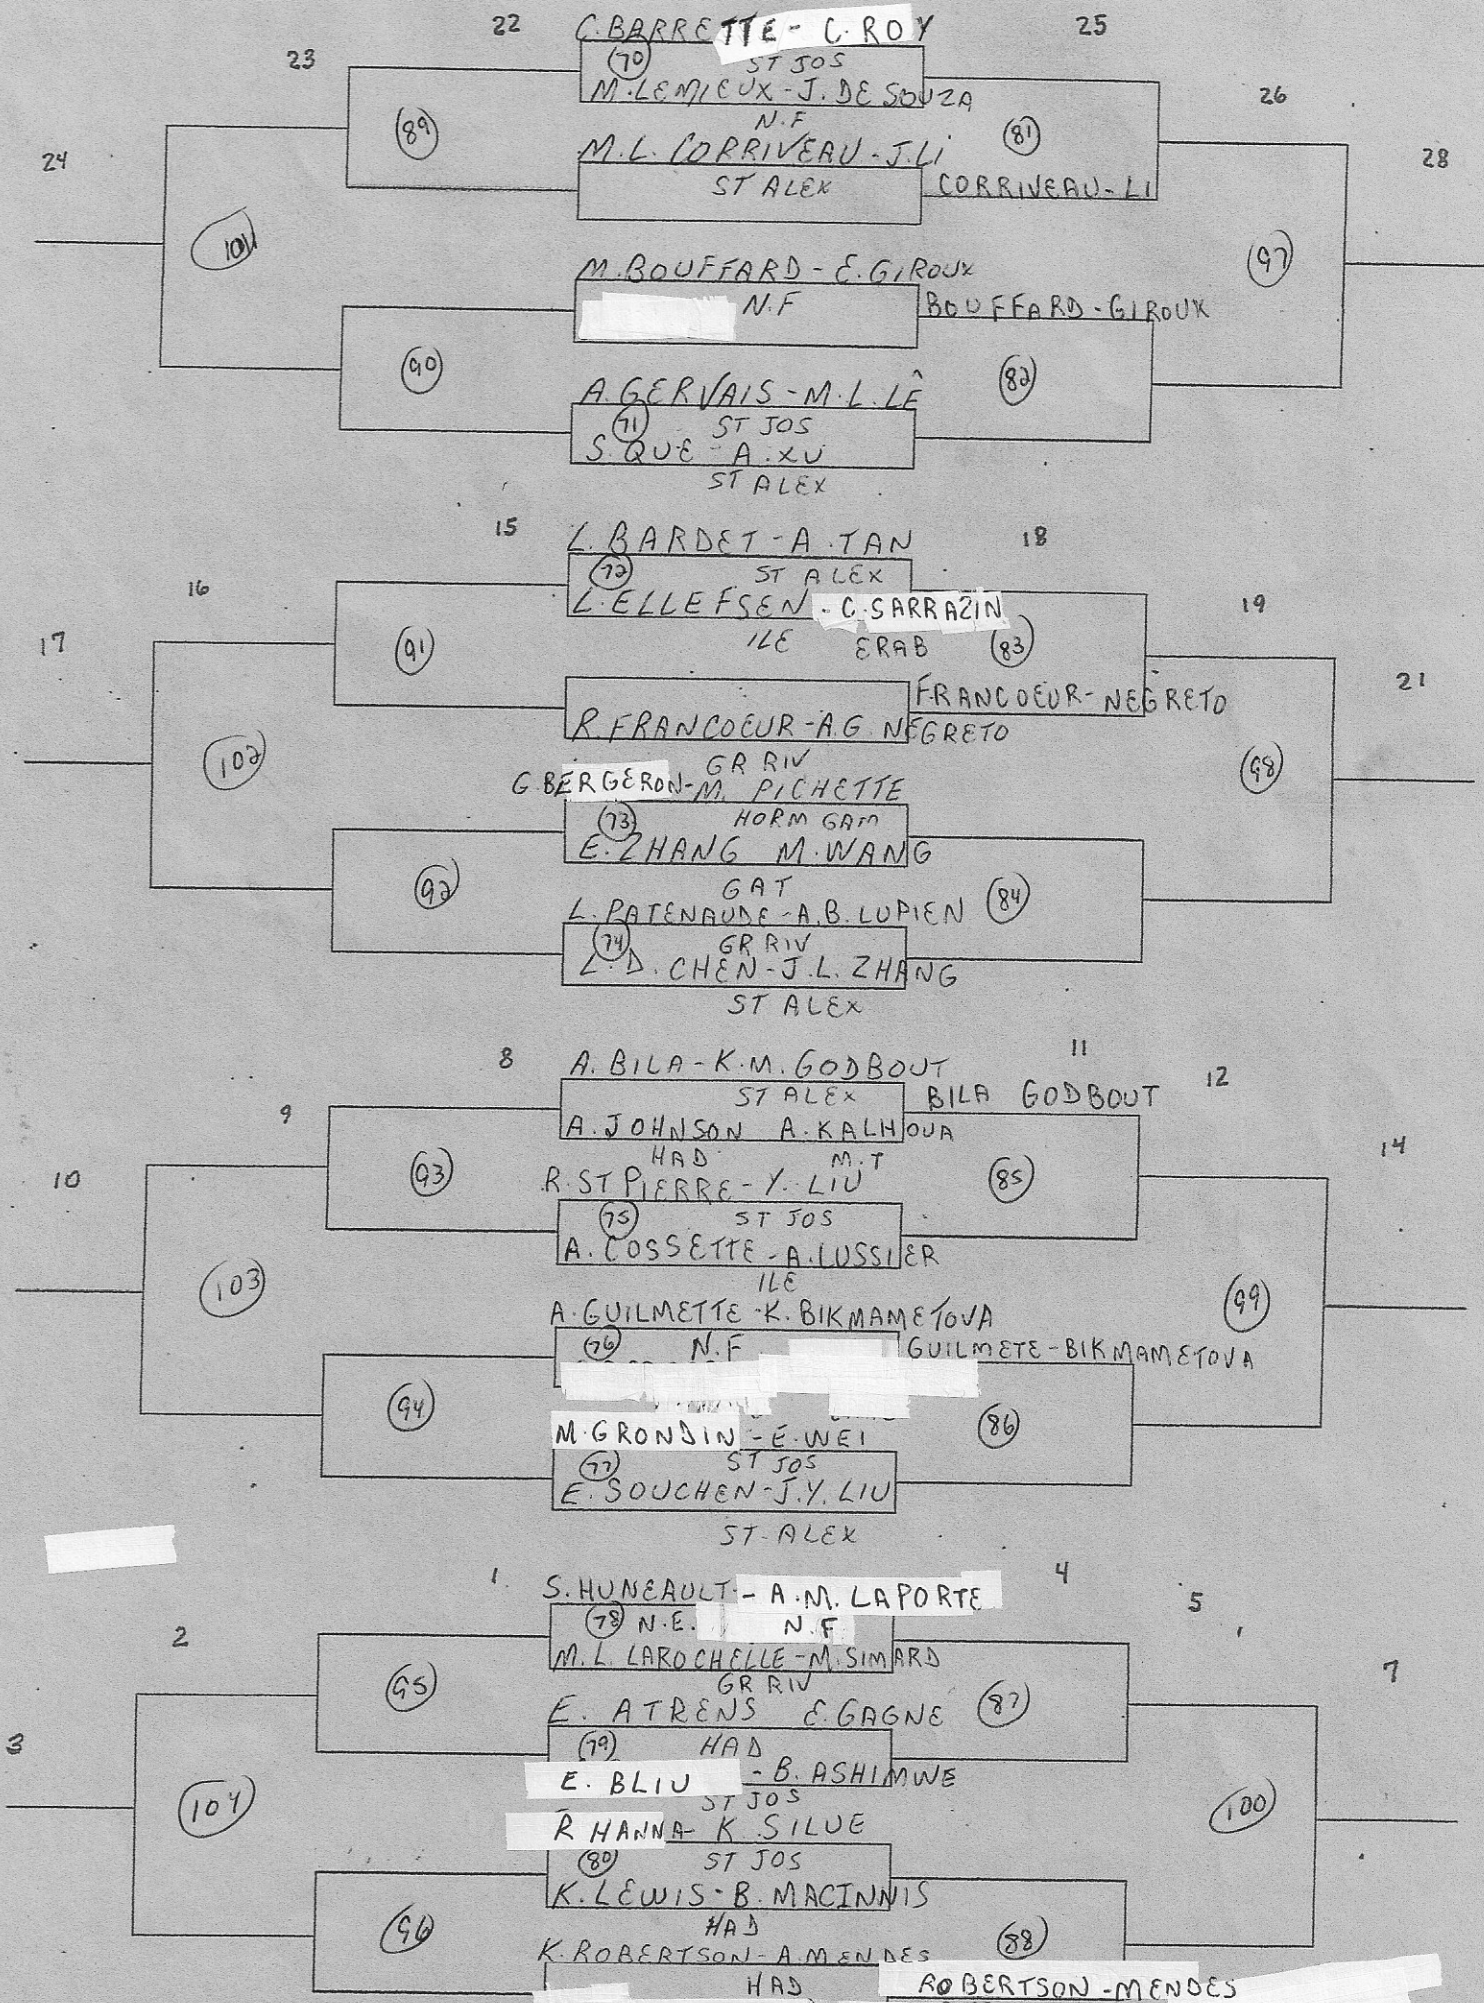 22 C. BARRETTE - C. ROY 25
23 (70) ST JOS
M. LEMIEUX - J. DE SOUZA 26
(89) N.F (81)
24 M.L. CORRIVEAU - J. Li 28
ST ALEX CORRIVEAU - LI
(97)
M. BOUFFARD - E. GIROUX
N.F BOUFFARD - GIROUX
(90) (82)
A. GERVAIS - M.L. LÊ
(71) ST JOS
S. QUE - A. XU
ST ALEX
15 L. BARDET - A. TAN 18
16 (72) ST ALEX
L. ELLEFSEN - C. SARRAZIN 19
17 (91) ILE ERAB (83)
FRANCOEUR - NEGRETO 21
R. FRANCOEUR - A.G. NEGRETO
(102) GR RIV (98)
G. BERGERON - M. PICHETTE
(73) HORM GAM
E. ZHANG M. WANG
(92) GAT (84)
L. PATENAUDE - A.B. LUPIEN
(74) GR RIV
L.D. CHEN - J.L. ZHANG
ST ALEX
8 A. BILA - K.M. GODBOUT 11
ST ALEX BILA GODBOUT 12
9 A. JOHNSON A. KALHOVA
(93) HAD M.T (85) 14
10 R. ST PIERRE - Y. LIU
(75) ST JOS
A. COSSETTE - A. LUSSIER
(103) ILE (99)
A. GUILMETTE - K. BIKMAMETOVA
(76) N.F GUILMETE - BIKMAMETOVA
(94) (86)
M. GRONDIN - E. WEI
(77) ST JOS
E. SOUCHEN - J.Y. LIU
ST. ALEX
1 S. HUNEAULT - A.M. LAPORTE 4
2 (78) N.E. N.F 5
M.L. LAROCHELLE - M. SIMARD
(95) GR RIV 7
E. ATRENS E. GAGNE (87)
3 (79) HAD
E. BLIU - B. ASHIMWE
(104) ST JOS (100)
R HANNA - K SILUE
(80) ST JOS
K. LEWIS - B. MACINNIS
(96) HAD (88)
K. ROBERTSON - A. MENDES
HAD ROBERTSON - MENDES